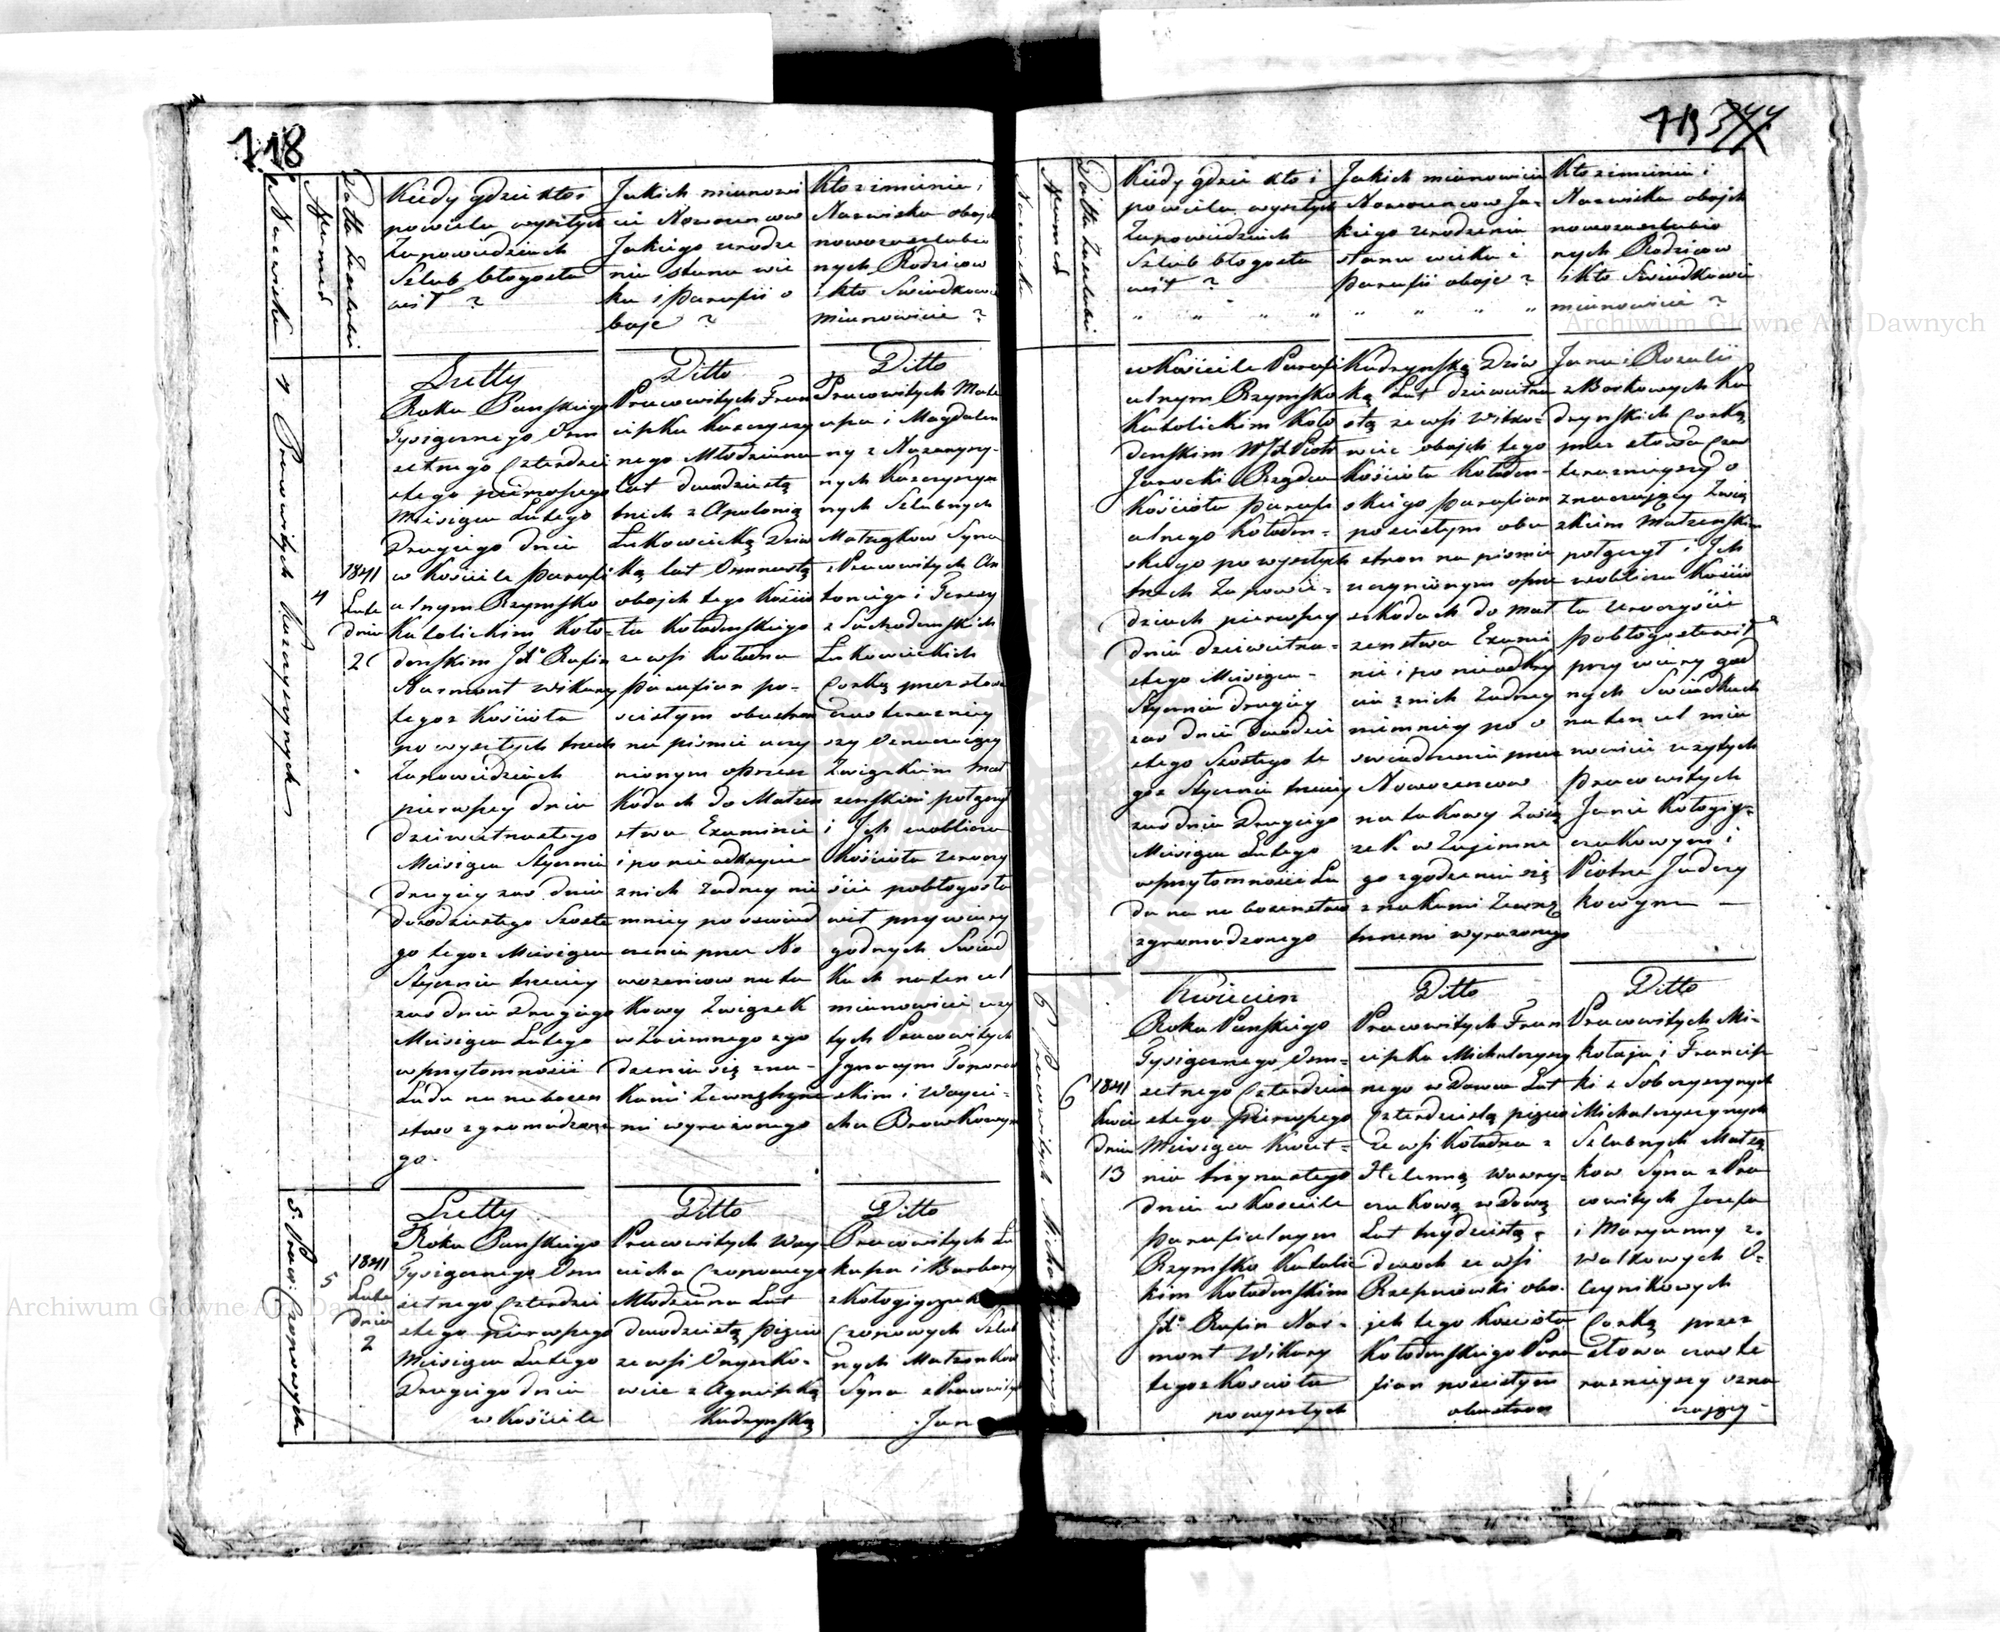 718
Nazwiska
Numer
Datta Zaslubin
Kiedy gdzie kto i
powielu wyszłych
Zapowiedziach
Szlub błogosła
wił ?
Jakich mianowi
cie Nowozencow
Jakiego urodze
nia stanu wie
ku i Parafii o
boje ?
Kto zimienia i
Nazwiska obojch
nowozaszlubio
nych Rodzicow
i kto Swiadkowie
mianowicie ?
4 Pracowitych Kazaryznych
4
1841
Lute
dnia
2
Luttty
Roku Panskiego
Tysiącznego Osm
setnego Czterdzie
stego pierwszego
Miesiąca Lutego
Drugiego dnia
w Kosciele Parafi
alnym Rzymsko
Katolickim Koło-
denskim Jdx Rafin
Narmont Wikary
tegoz Kościoła
po wyszłych trzech
Zapowiedziach
pierwszey dnia
dziewietnastego
Miesiąca Stycznia
drugiey zas dnia
dwódziestego Szoste
go tegoz Miesiąca
Stycznia trzeciey
zas dnia Drugiego
Miesiąca Lutego
wprzytomnosci
Ludu na nabozen
stwo zgromadzone
go.
Ditto
Pracowitych Fran
ciszka
nego Młodziana
Lat dwadziestą
trzech z Apolonią
Lukowiecką Dziew
ką lat Osmnastą
obojch tego Kościo
ła Kołodenskiego
ze wsi Kołodna
Parafian po-
scisłym obustron
na pismie uczy
nionym o przesz
kodach do Małzen
stwa Examinie
i po nie odkryciu
znich zadney nie
mniey po oswiad
czeniu przez No
wozencow na ta
kowy Związek
wzaiemnego zgo
dzenia się zna-
kami zewnętrzne
mi wyrażonego
Ditto
Pracowitych Mate
usza i Magdalen
ny z
nych
nych Szlubnych
Małzonkow Syna
z Pracowitych An
toniego i Teresy
z Suchodolskich
Lukowieckich
Corką przez słowa
czas terazniey
szy Oznaczaiący
Związkiem Mał
zenskim połączył
i Jch w obliczu
Kościoła Uroczy
ście pobłogosła
wił przy wiary
godnych Swiad
kach na ten cel
mianowicie uzy
tych Pracowitych
Jgnacym
skim i Woycie-
cha
5. Praw: Czopowych
5
1841
Lute
dnia
2
Luttty
Roku Panskiego
Tysiącznego Osm
setnego Czterdzie
stego pierwszego
Miesiąca Lutego
Drugiego dnia
w Kościele
Ditto
Pracowitych Woy-
ciecha Czopowego
Młodziana Lat
dwadziestą pięciu
ze wsi Onyszko-
wiec z Agnieszką
Kudrynską
Ditto
Pracowitych Łu
kasza i Barbary
z
Czopowych Szlub
nych Małzonkow
Syna z Pracowitych
Jan
719 344
Nazwiska
Numer
Datta Zaslubin
Kiedy gdzie kto i
po wielu wyszłych
Zapowiedziach
Szlub błogosła
wił ?
" " " "
Jakich mianowicie
Nowozencow Ja-
kiego urodzenia
stanu wieku i
Parafii oboje ?
" " " "
Kto zimienia i
Nazwiska obojch
nowozaszlubio
nych Rodzicow
i kto Swiadkowie
mianowicie ?
w Kościele Parafi
alnym Rzymsko
Katolickim Koło
denskim WJX Piotr
Jarocki Rządca
Kościoła Parafi
alnego Kołoden-
skiego po wyszłych
trzech Zapowie-
dziach pierwszey
dnia dziewietna-
stego Miesiąca
Stycznia drugiey
zas dnia dwodzie
stego Szostego te
goz Stycznia trzeciey
zas dnia Drugiego
Miesiąca Lutego
wprzytomnosci Lu
du na nabozenstwo
zgromadzonego
Kudrynską Dziew
ką Lat dziewietna
stą ze wsi
wiec obojch tego
Kościoła Kołoden-
skiego Parafian
po scisłym obu
stron na pismie
uczynionym o prze
szkodach do Mał
zenstwa Exami
nie i po nieodkry
ciu z nich Zadney
niemniey po o
swiadczeniu przez
Nowozencow
na takowy Zwią
zek wzajemne
go zgodzenia się
znakami Zewnę
trznemi wyrażonego
Jana i Rozalii
z Borkowych Ku
drynskich Corką
przez słowa czas
terazniejszy o
znaczający Zwią
zkiem Małzenskim
połączył i Jch
w obliczu Kościo
ła Uroczyście
pobłogosławił
przy wiary god
nych Swiadkach
na ten cel mia
nowicie uzytych
Pracowitych
Janie
i
Piotra
kowym —
6 Pracowitych Michalczysznych
6
1841
Kwie
dnia
13
Kwiecien
Roku Panskiego
Tysiącznego Osm-
setnego Czterdzie
stego Pierwszego
Miesiąca Kwiet-
nia trzynastego
dnia w Kosciele
Parafialnym
Rzymsko Katolic
kim Kołodenskim
Jdx Rafin Nar-
mont Wikary
tegoz Kościoła
po wyszłych
Ditto
Pracowitych Fran
ciszka Michalczysz
nego wdowca Lat
Czterdziestą pięciu
ze wsi Kołodna z
Helenną Wawry-
czukową wdową
Lat trzydziestą
dwóch ze wsi
Rzepniowki obo-
jch tego Kościoła
Kołodenskiego Para
fian po scisłym
obustron
Ditto
Pracowitych Mi-
kołaja i Francisz
ki z Sobczysznych
Michalczysznych
Szlubnych Małzą
kow Syna z Pra
cowitych Jozefa
i Maryanny z
Walkowych O-
leynikowych
Corką przez
słowa czas te
raznieyszy ozna
czaiący-
Archiwum Główne Akt Dawnych
Archiwum Główne Akt Dawnych